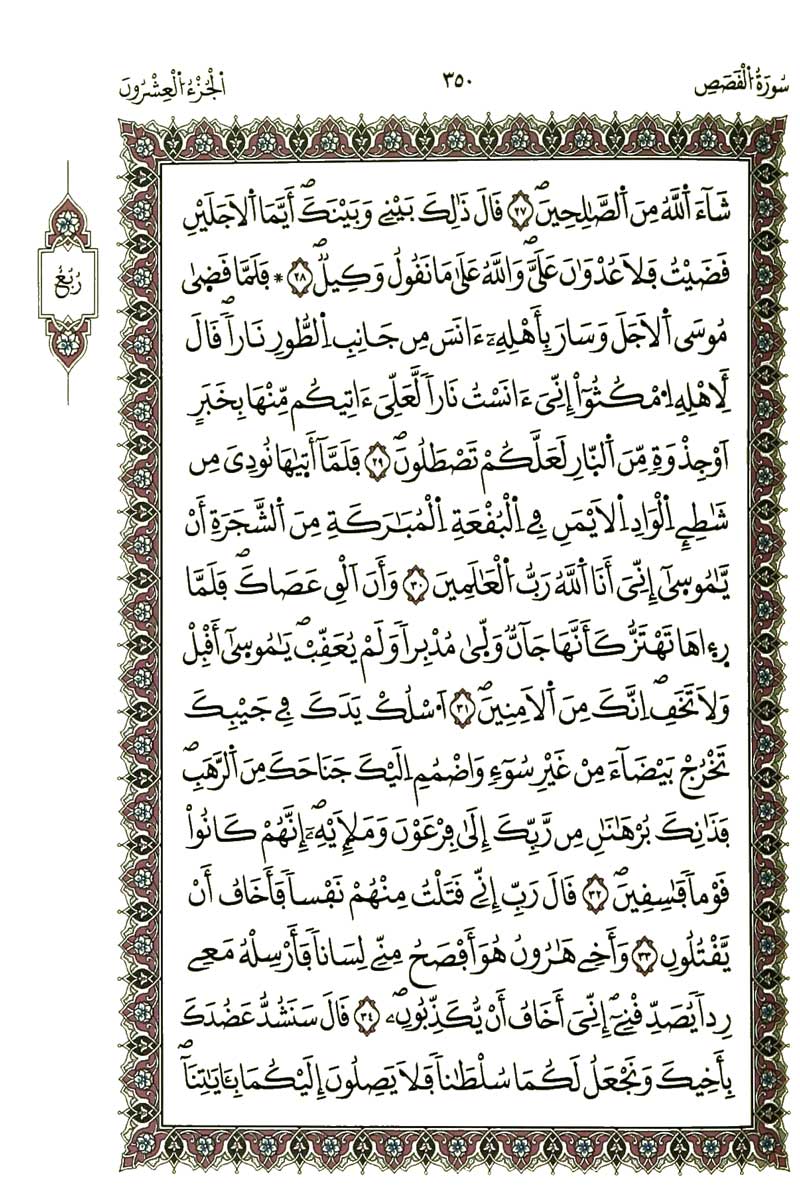 سُورَةُ اُ۬لْقَصَصِ
٣٥٠
اَ۬لْجُزْءُ اُ۬لْعِشْرُونَ
شَآءَ اَ۬للَّهُ مِنَ اَ۬لصَّٰلِحِينَۖ ٢٧ قَالَ ذَٰلِكَ بَيْنِے وَبَيْنَكَۖ أَيَّمَا اَ۬لَاجَلَيْنِ
قَضَيْتُ فَلَا عُدْوَٰنَ عَلَيَّۖ وَاللَّهُ عَلَىٰ مَا نَقُولُ وَكِيلٞۖ ٢٨ * فَلَمَّا قَضَىٰ
مُوسَى اَ۬لَاجَلَ وَسَارَ بِأَهْلِهِۦٓ ءَانَسَ مِن جَانِبِ اِ۬لطُّورِ نَاراٗۖ قَالَ
لِأَهْلِهِ اِ۟مْكُثُوٓاْ إِنِّيَ ءَانَسْتُ نَاراٗ لَّعَلِّيَ ءَاتِيكُم مِّنْهَا بِخَبَرٍ
اَوْ جِذْوَةٖ مِّنَ اَ۬لنّ۪ارِ لَعَلَّكُمْ تَصْطَلُونَۖ ٢٩ فَلَمَّآ أَت۪يٰهَا نُودِيَ مِن
شَٰطِےِٕ اِ۬لْوَادِ اِ۬لَايْمَنِ فِے اِ۬لْبُقْعَةِ اِ۬لْمُبَٰرَكَةِ مِنَ اَ۬لشَّجَرَةِ أَنْ
يَّٰمُوس۪يٰٓ إِنِّيَ أَنَا اَ۬للَّهُ رَبُّ اُ۬لْعَٰلَمِينَ ٣٠ وَأَنَ اَلْقِ عَصَاكَۖ فَلَمَّا
ر۪ء۪اهَا تَهْتَزُّ كَأَنَّهَا جَآنّٞ وَلّ۪يٰ مُدْبِراٗ وَلَمْ يُعَقِّبْۖ يَٰمُوس۪يٰٓ أَقْبِلْ
وَلَا تَخَفِۖ اِنَّكَ مِنَ اَ۬لَامِنِينَۖ ٣١ اَ۟سْلُكْ يَدَكَ فِے جَيْبِكَ
تَخْرُجْ بَيْضَآءَ مِنْ غَيْرِ سُوٓءٖ وَاضْمُمِ اِلَيْكَ جَنَاحَكَ مِنَ اَ۬لرَّهَبِۖ
فَذَٰنِكَ بُرْهَٰنَٰنِ مِن رَّبِّكَ إِلَىٰ فِرْعَوْنَ وَمَلَإِيْهِۦٓۖ إِنَّهُمْ كَانُواْ
قَوْماٗ فَٰسِقِينَۖ ٣٢ قَالَ رَبِّ إِنِّے قَتَلْتُ مِنْهُمْ نَفْساٗ فَأَخَافُ أَنْ
يَّقْتُلُونِ ٣٣ وَأَخِے هَٰرُونُ هُوَ أَفْصَحُ مِنِّے لِسَاناٗ فَأَرْسِلْهُ مَعِے
رِداٗ يُصَدِّقْنِےٓۖ إِنِّيَ أَخَافُ أَنْ يُّكَذِّبُونِۦۖ ٣٤ قَالَ سَنَشُدُّ عَضُدَكَ
بِأَخِيكَ وَنَجْعَلُ لَكُمَا سُلْطَٰناٗ فَلَا يَصِلُونَ إِلَيْكُمَا بِـَٔايَٰتِنَآۖ
رُبُعُ